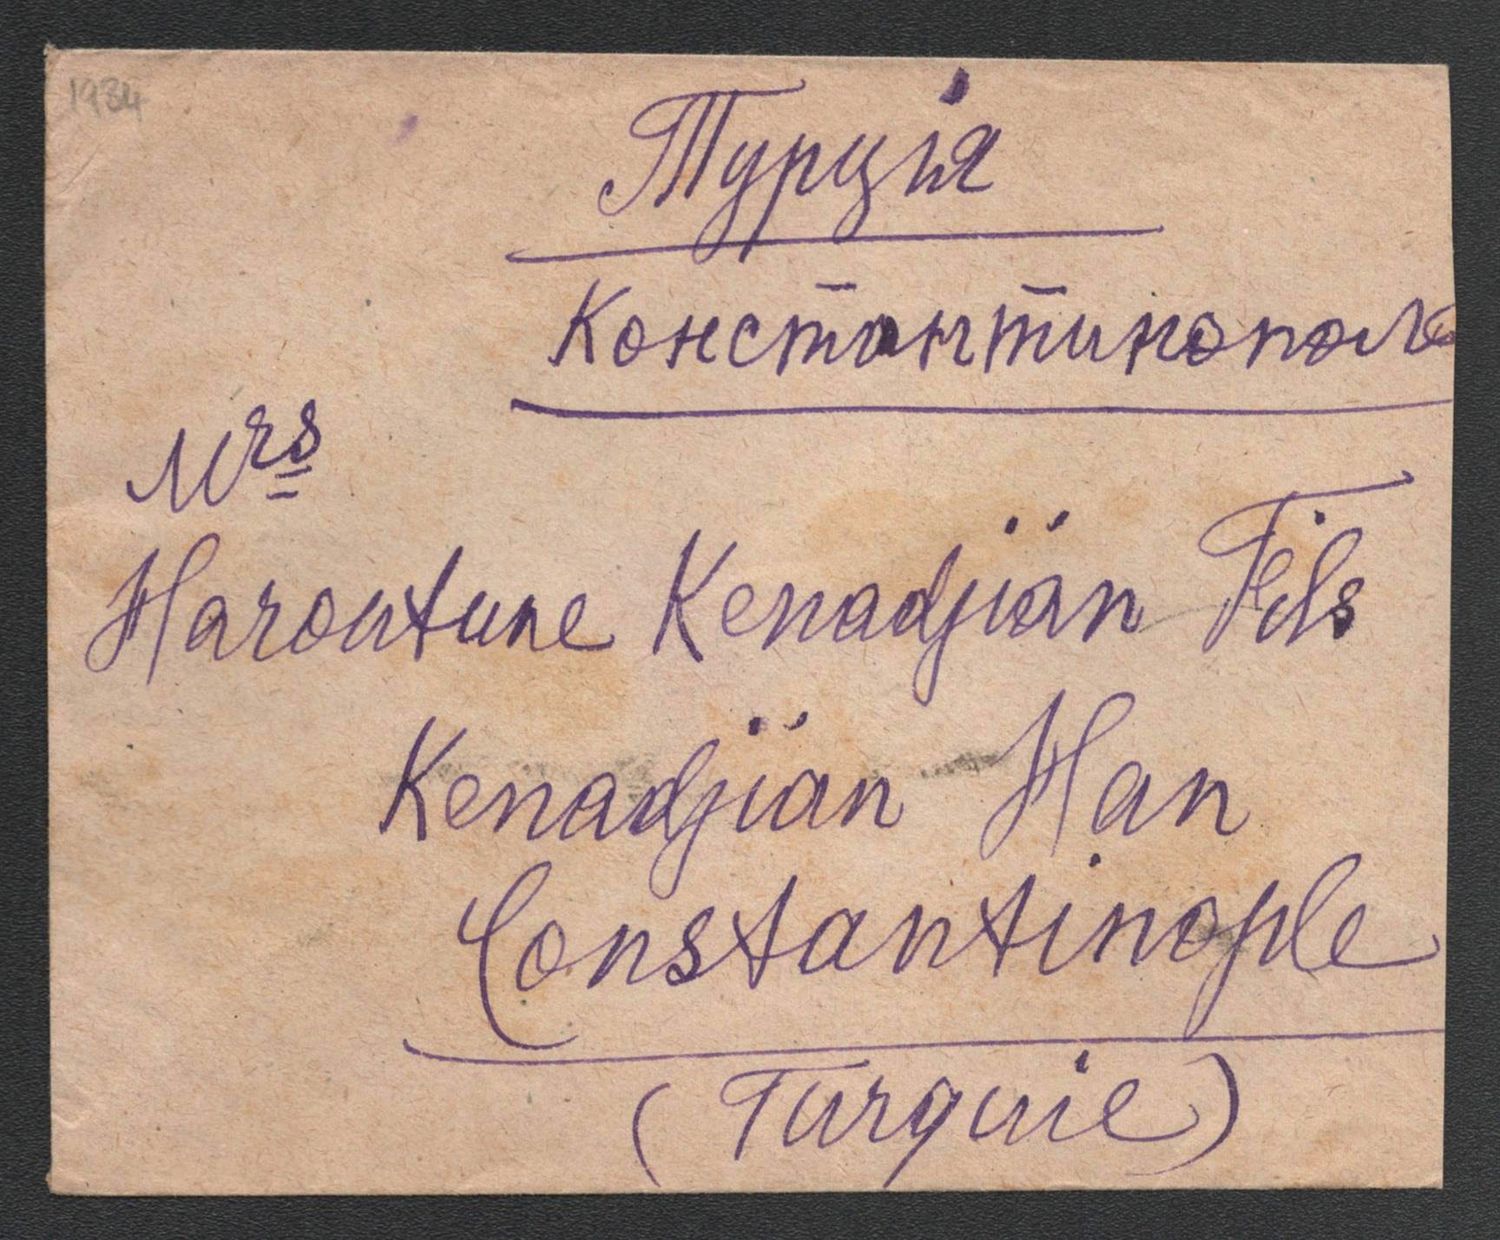 1934
Турція
Константинополь
Mrs
Haroutune Kenadjïan Fils
Kenadjïan Han
Constantinople
(Turquie)